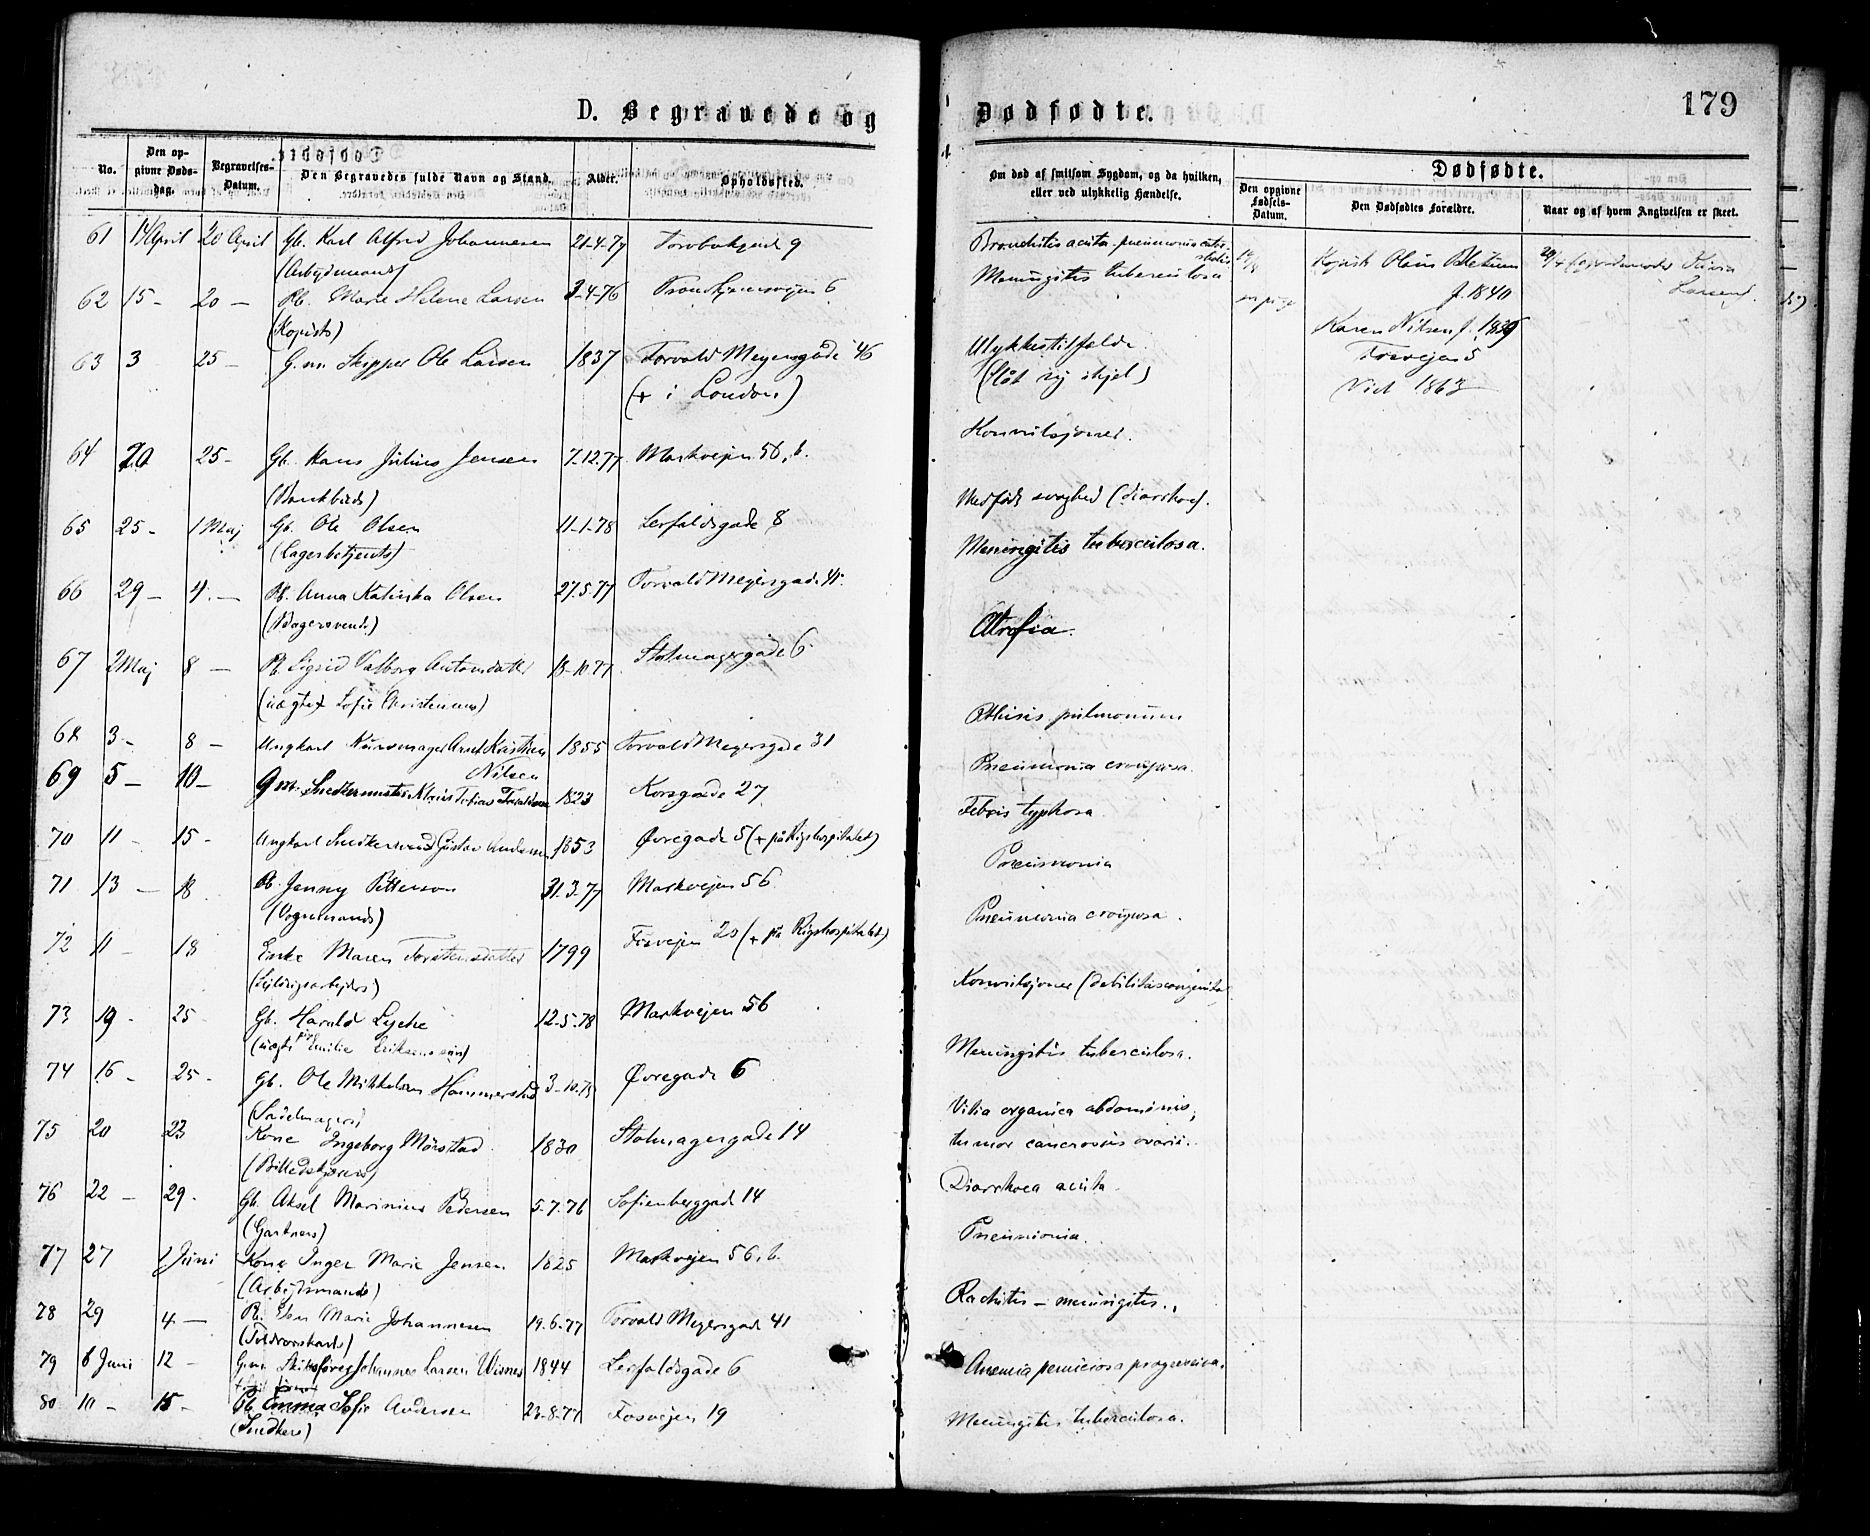 D. Begravede og
Dødfødte.
179
No.
Den opgivne Dødsdag.
Begravelses-Datum.
Den Begravedes fulde Navn og Stand.
Alder.
Opholdssted.
Om død af smitsom Sygdom, og da hvilken, eller ved ulykkelig Hændelse.
Dødfødte.
Den opgivne Fødsels-Datum.
Den Dødfødtes Forældre.
Naar og af hvem Angivelsen er skeet.
61 14 April 20 April Gb. Karl Alfred Johannesen 21-4-77 9 Bronchitis acuta
(Arbejdsmands)
62 15 - 20 - Pb. Marie Helene Larsen 3-4-76 Trondhjemsvejen 6 Meningitis tuberculosa
(Kopists)
63 3 25 - G.m. Skipper Ole Larsen 1837 Torvald Meyersgade 46 Ulykkestilfælde
(+ i London) (slåt sig ihjel)
64 20 25 - Gb. Hans Julius Jensen 7-12-77 Markvejen 56, b. Konvulsjoner.
65 25 - 1 Maj Gb. Ole Olsen 11-1-78 Lerfaldsgade 8 Medfødt svaghed (diarrhoe).
(Lagerbetjents)
66 29 - 4 - Pb. Anna Katinka Olsen 27.5.77 Torvald Meyersgade 41. Meningitis tuberculosa.
(Bagersvends)
67 2 Maj 8 - Pb. Sigrid Valborg Antonsdatter 13-10-77 Stolmagergade 6 Atrofia.
(uægte)
68 3 - 8 - Ungkarl Arnt Kristian 1855 Torvald Meyersgade 31 Pthisis pulmonum
Nilsen
69 5 - 10 - Gm. Snedkermester 1823 Korsgade 27 Pneumonia crouposa.
70 11 - 15 - Ungkarl Snedkersvend Gustav Andersen 1853 Øvregade 5 (+ på Rigshospitalet) Febris typhosa.
71 13 - 18 Pb. Jenny Petterson 31.3-77 Markvejen 56 Pneumonia
(Vognmands)
72 11 - 18 Enke Maren Torstensdatter 1799 Fosvejen 20 (+ på Rigshospitalet) Pneumonia crouposa.
73 19 - 25 - Gb. Harald Lyche 12-5-78 Markvejen 56 Konvulsjoner (debilitas congenita)
(uægte Emilie Eriksens søn)
74 16 - 25 - Gb. Ole Mikkelsen Hammerstad 3-10-75 Øvregade 6 Meningitis tuberculosa.
(Sadelmagers)
75 20 23 Kone Ingeborg Mörstad 1830 Stolmagergade 14 Vitia organica abdominis,
(Billedskjærers) tumor cancrosus ovarii.
76 22 - 29 - Gb. Aksel Marinius Pedersen 5-7-76 Sofienberggade 14 Diarrhoea acuta.
(Gartners)
77 27 1 Juni Kone Inger Marie Jensen 1825 Markvejen 56, b. Pneumonia.
(Arbejdsmands)
78 29 4 - Pb. Marie Johannesen 19-6-77 Torvald Meyersgade 41 Rachitis - meningitis.
79 6 Juni 12 - G.m. Johannes Larsen 1844 Lerfaldsgade 6 Anæmia perniciosa progressiva.
80 10 - 15 - Pb. Emma Sofie Andersen 23-8-77 Fosvejen 19 Meningitis tuberculosa.
(Snedkers)
Kopist Olaus
f. 1840
Karen Nilsen f. 1836
Fosvejen 5
Viet 1863
Larsen